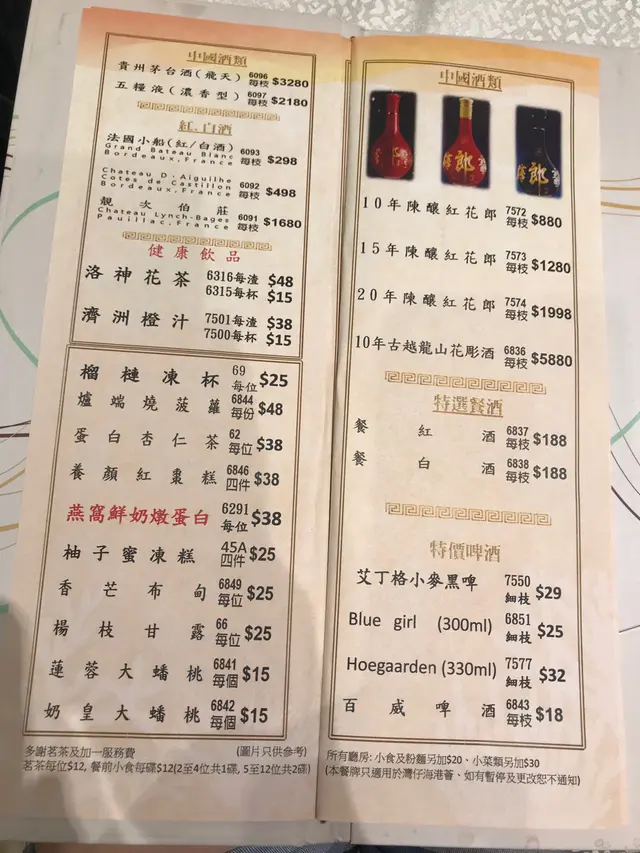 中國酒類
貴州茅台酒(飛天) 6096 每枝 $3280
五糧液(濃香型) 6097 每枝 $2180
紅、白酒
法國小船(紅/白酒) 6093 每枝 $298
Grand Bateau Blanc
Bordeaux, France
Chateau D'Aiguilhe 6092 每枝 $498
Cotes de Castillon
Bordeaux, France
靚次伯莊 6091 每枝 $1680
Chateau Lynch-Bages
Pauillac, France
健康飲品
洛神花茶 6316每渣 $48
6315每杯 $15
濟洲橙汁 7501每渣 $38
7500每杯 $15
榴槤凍杯 69 每位 $25
爐端燒菠蘿 6844 每份 $48
蛋白杏仁茶 62 每位 $38
養顏紅棗糕 6846 四件 $38
燕窩鮮奶燉蛋白 6291 每位 $38
柚子蜜凍糕 45A 四件 $25
香芒布甸 6849 每位 $25
楊枝甘露 66 每位 $25
蓮蓉大蟠桃 6841 每個 $15
奶皇大蟠桃 6842 每個 $15
多謝茗茶及加一服務費 (圖片只供參考)
茗茶每位$12, 餐前小食每碟$12(2至4位共1碟, 5至12位共2碟)
中國酒類
郎
郎
10年陳釀紅花郎 7572 每枝 $880
15年陳釀紅花郎 7573 每枝 $1280
20年陳釀紅花郎 7574 每枝 $1998
10年古越龍山花彫酒 6836 每枝 $5880
特選餐酒
餐紅酒 6837 每枝 $188
餐白酒 6838 每枝 $188
特價啤酒
艾丁格小麥黑啤 7550 細枝 $29
Blue girl (300ml) 6851 細枝 $25
Hoegaarden (330ml) 7577 細枝 $32
百威啤酒 6843 每枝 $18
所有廳房: 小食及粉麵另加$20、小菜類另加$30
(本餐牌只適用於灣仔海港薈、如有暫停及更改恕不通知)